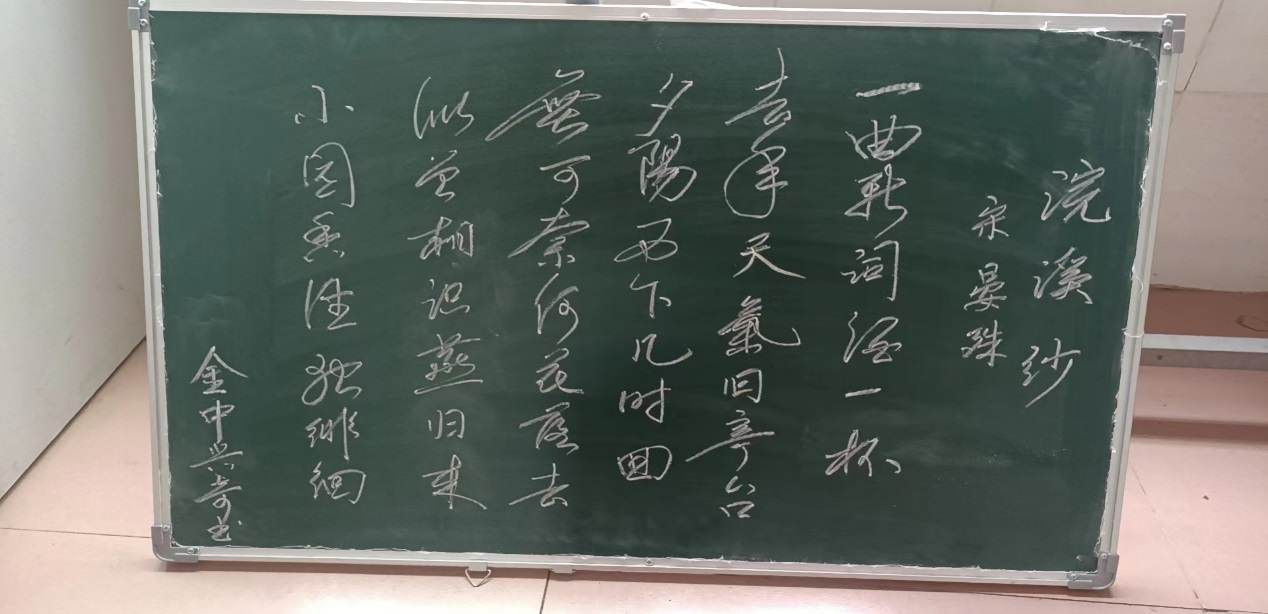 浣溪纱
宋晏殊
一曲新词酒一杯
去年天氣旧亭台
夕陽西下几时回
無可奈何花落去
似曾相识燕归来
小园香径独徘徊
金中兴奇书